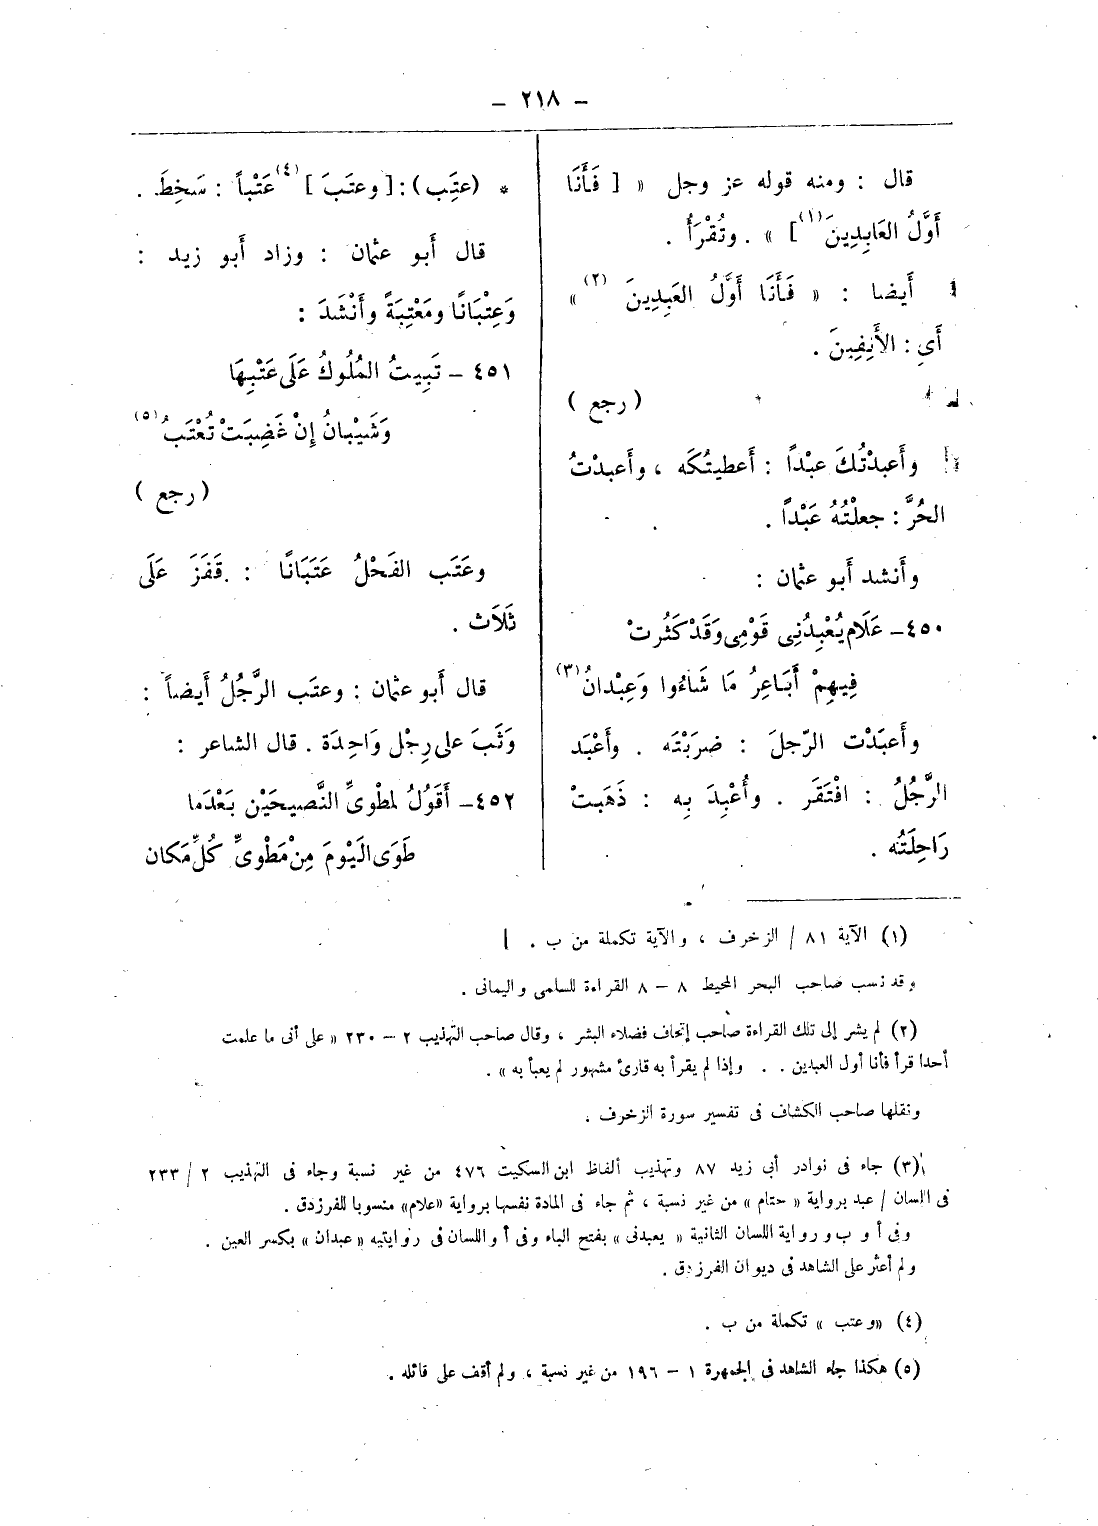 – ٢١٨ –
قال : ومنه قوله عز وجل « [ فَأَنَا
أَوَّلُ العَابِدِينَ(١) ] » . وتُقْرَأُ .
أَيضا : « فَأَنَا أَوَّلُ العَبِدِينَ (٢) »
أَىِ : الأَنِفِينَ .
( رجع )
وأَعبدْتُكَ عبْداً : أَعطيتُكَه ، وأَعبدْتُ
الحُرَّ : جعلْتُهُ عَبْداً .
وأَنشد أَبو عثمان :
٤٥٠ – عَلَام يُعْبِدُنِى قَوْمِى وَقَدْ كَثُرتْ
فِيهِمْ أَبَاعِرُ مَا شَاءُوا وَعِبْدانُ(٣)
وأَعبَدْت الرّجلَ : ضرَبْتَه . وأَعْبَد
الرَّجُلُ : افْتَقَر . وأُعْبِدَ بِه : ذَهَبتْ
رَاحِلَتُه .
* (عتِب) : [ وعتَبَ ](٤) عَتْباً : سَخِطَ .
قال أَبو عثمان : وزاد أَبو زيد :
وَعِتْبَانًا ومَعْتِبَةً وأَنْشَدَ :
٤٥١ – تَبِيتُ المُلُوكُ عَلَى عَتْبِهَا
وَشَيْبانُ إِنْ غَضِبَتْ تُعْتَبُ(٥)
( رجع )
وعَتَب الفَحْلُ عَتَبَانًا : قَفَزَ عَلَى
ثَلَاث .
قال أَبو عثمان : وعتَب الرَّجُلُ أَيضاً :
وَثَبَ على رِجْل وَاحِدَة . قال الشاعر :
٤٥٢ – أَقَوُلُ لمطْوِىِّ النَّصيحَيْن بَعْدَما
طَوَى الَيْومَ مِنْ مَطْوِىٍّ كُلِّ مَكَان
(١) الآية ٨١ / الزخرف ، والآية تكملة من ب .
وقد نسب صاحب البحر المحيط ٨ – ٨ القراءة للسلمى واليمانى .
(٢) لم يشر إلى تلك القراءة صاحب إتحاف فضلاء البشر ، وقال صاحب التهذيب ٢ – ٢٣٠ « على أنى ما علمت
أحدا قرأ فأنا أول العبدين . . وإذا لم يقرأ به قارئ مشهور لم يعبأ به » .
ونقلها صاحب الكشاف فى تفسير سورة الزخرف .
(٣) جاء فى نوادر أبى زيد ٨٧ وتهذيب ألفاظ ابن السكيت ٤٧٦ من غير نسبة وجاء فى التهذيب ٢ / ٢٣٣
فى اللسان / عبد برواية « حتام » من غير نسبة ، ثم جاء فى المادة نفسها برواية «علام» منسوبا للفرزدق .
وفى أ و ب ورواية اللسان الثانية « يعبدنى » بفتح الباء وفى أ واللسان فى روايتيه «عبدان » بكسر العين .
ولم أعثر على الشاهد فى ديوان الفرزدق .
(٤) «وعتب » تكملة من ب .
(٥) هكذا جاء الشاهد فى الجمهرة ١ – ١٩٦ من غير نسبة ، ولم أقف على قائله .